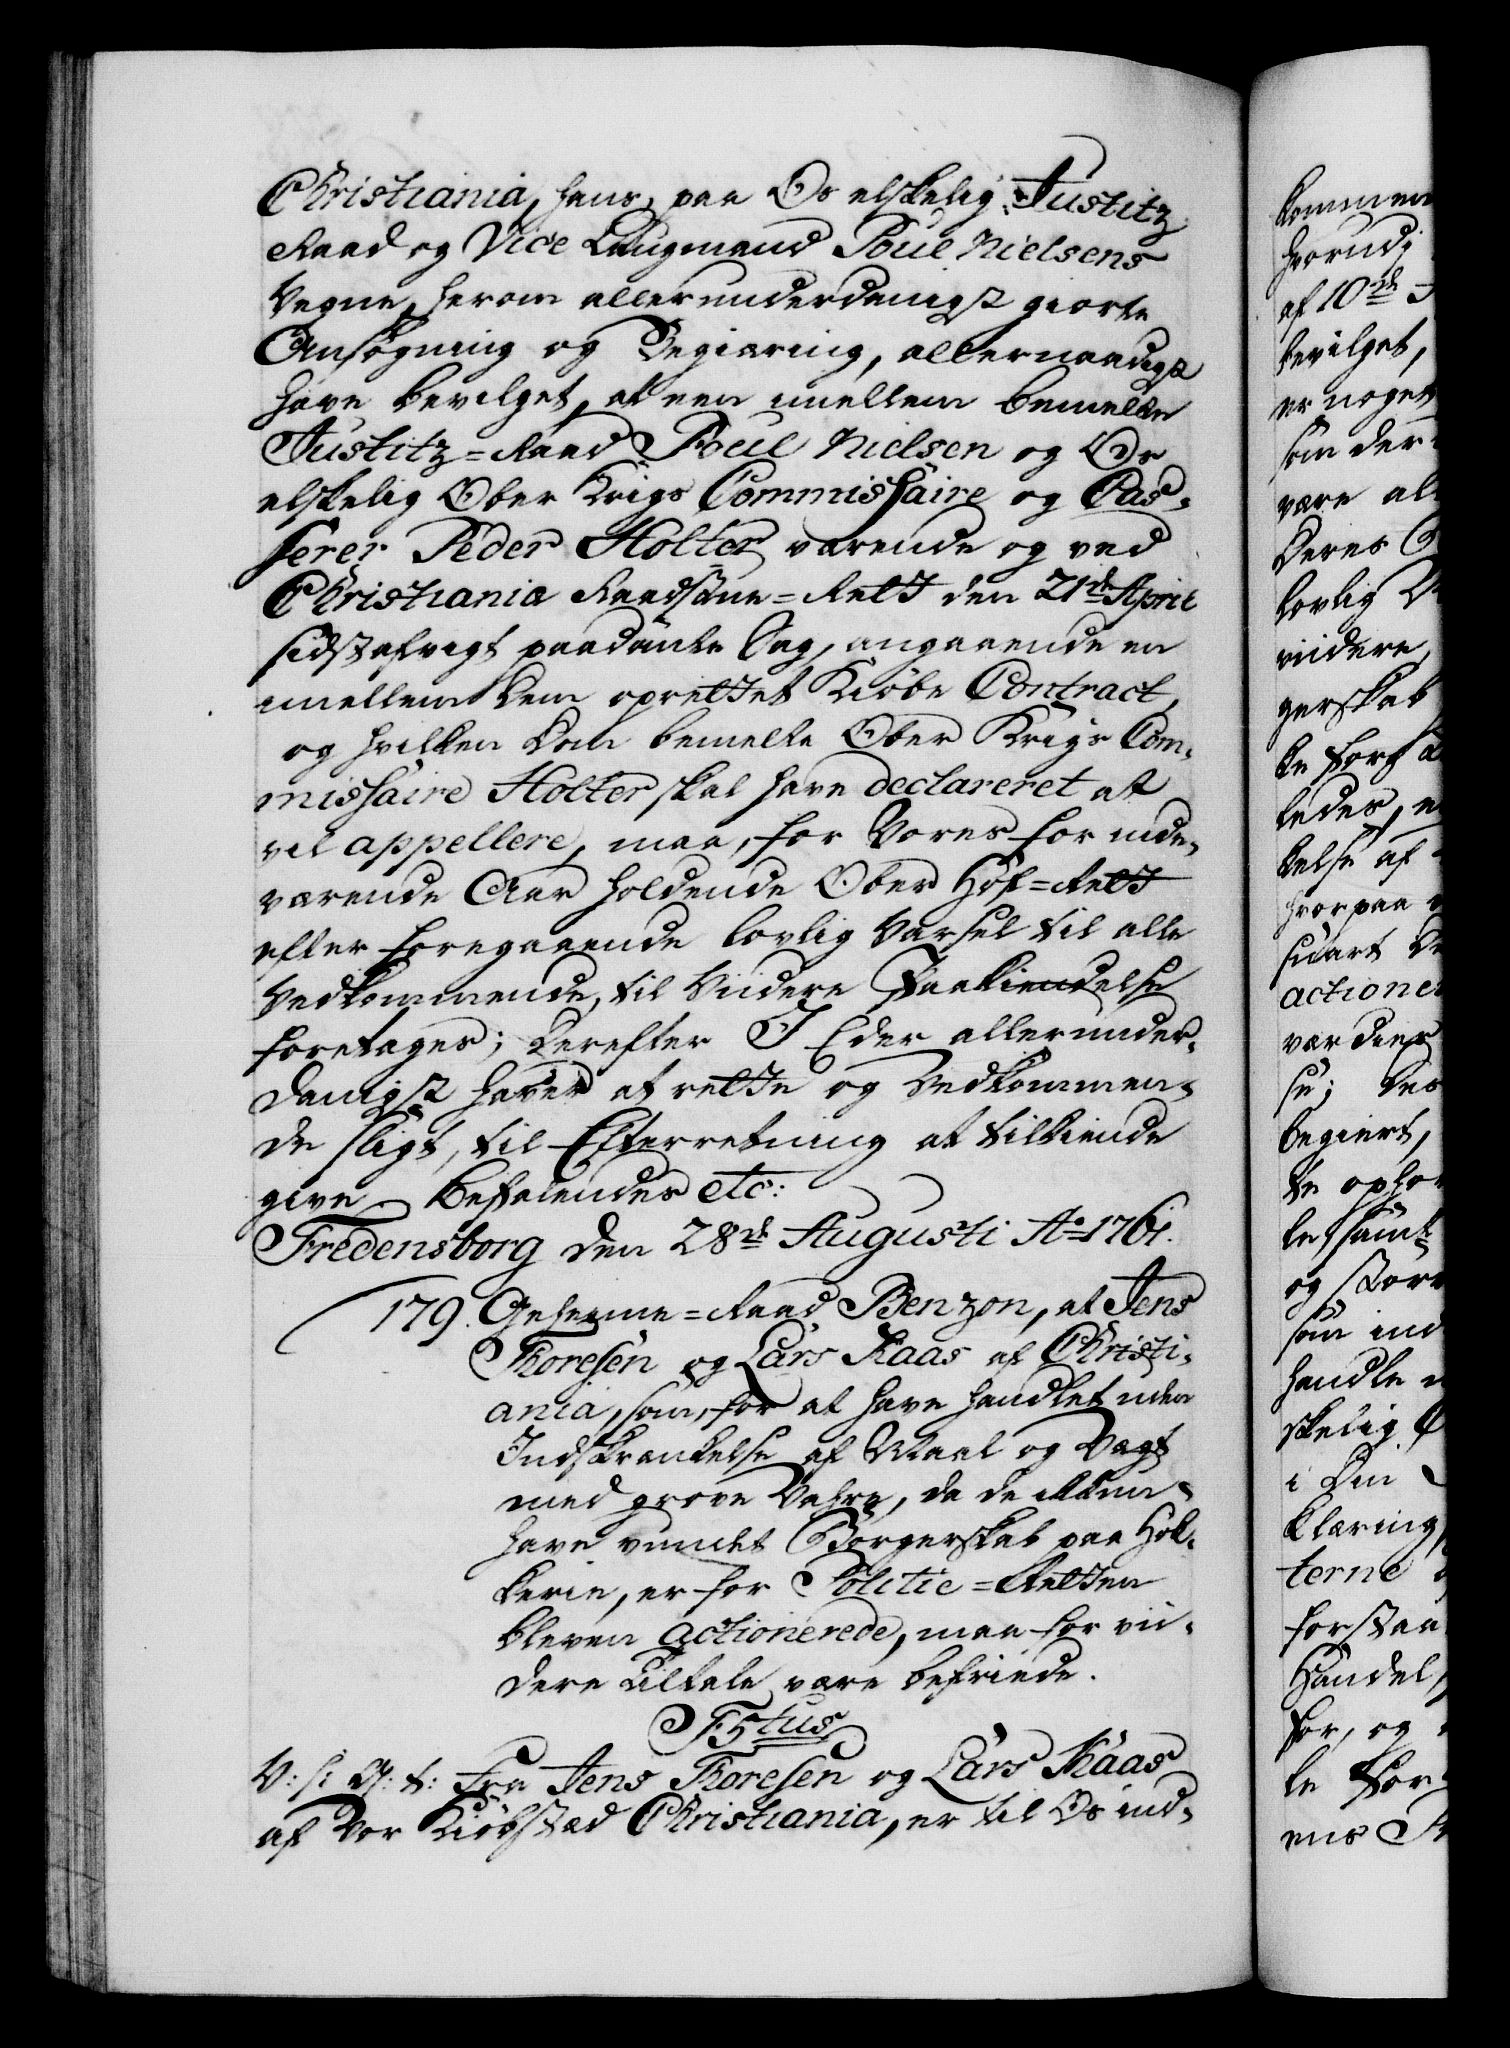 Christiania, hans, paa Os elskelig Justitz
Raad og Vice Laugmand Poul Nielsens
Vegne, herom allerunderdanigst giorte
Ansøgning og Begiæring, allernaadigst
have bevilget, at een imellem bemelte
Justitz=Raad Poul Nielsen og Os
elskelig Ober Krigs Commissaire og Cas-
serer Peder Holter værende og ved
Christiania Raadstue=Rett den 21de April
sidstafvigt paadømte Sag, angaaende en
imellem Dem oprettet Kiøbe Contract,
og hvilken Dom bemelte Ober Krigs Com-
missaire Holter skal have declareret at
vil appellere, maa, for Vores for inde-
værende Aar holdende Ober Hof=Rett
efter foregaaende lovlig Varsel til alle
Vedkommende, til Viidere Paakiendelse
foretages; Derefter I Eder allerunder-
danigst haver at rette og Vedkommen-
de sligt, til Efterretning at tilkiende
give. Befalendes etc:
Fredensborg den 28de Augusti Ao 1761.
179. Geheime=Raad Benzon, at Jens
Thoresen og Lars Kaas af Christi-
ania, som, for at have handlet uden
Indskrænkelse af Maal og Vægt
med grove Vahre, da de ikkun
have vundet Borgerskab paa Høk-
kerie, er for Politie=Retten
bleven actionerede, maa for vii-
dere Tiltale være befriede.
F5tus
V: s: G: t: Fra Jens Thoresen og Lars Kaas
af Vor Kiøbstæd Christiania, er til Os ind-
kommen
hvorudi
af 10de
bevilget,
er noget
som der
være al
Deres
lovlig
viidere
gerskab
de for
ledes,
kelse af
hvorpaa
snart
actione
var
se; Des
begiert,
te ophø
le samt
og stør
som ind
handle
skelig
i Din
klæring,
terne
forstaa
Handel,
for, og
le for
ens